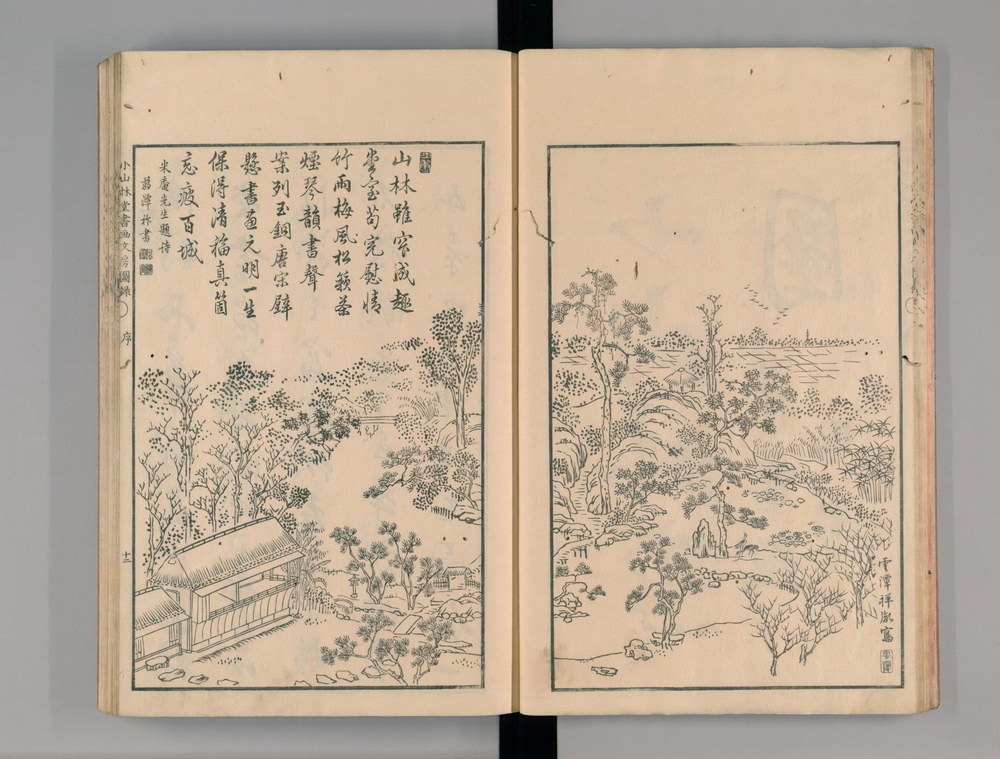 雲潭祥胤寫
山林雖窄成趣
堂室苟完慰情
竹雨梅風松籟茶
煙琴韻書聲
案列玉銅唐宋壁
懸書画元明一生
保得清福真箇
忘疲百城
米庵先生題詩
小山林堂書画文房圖錄 序 十二